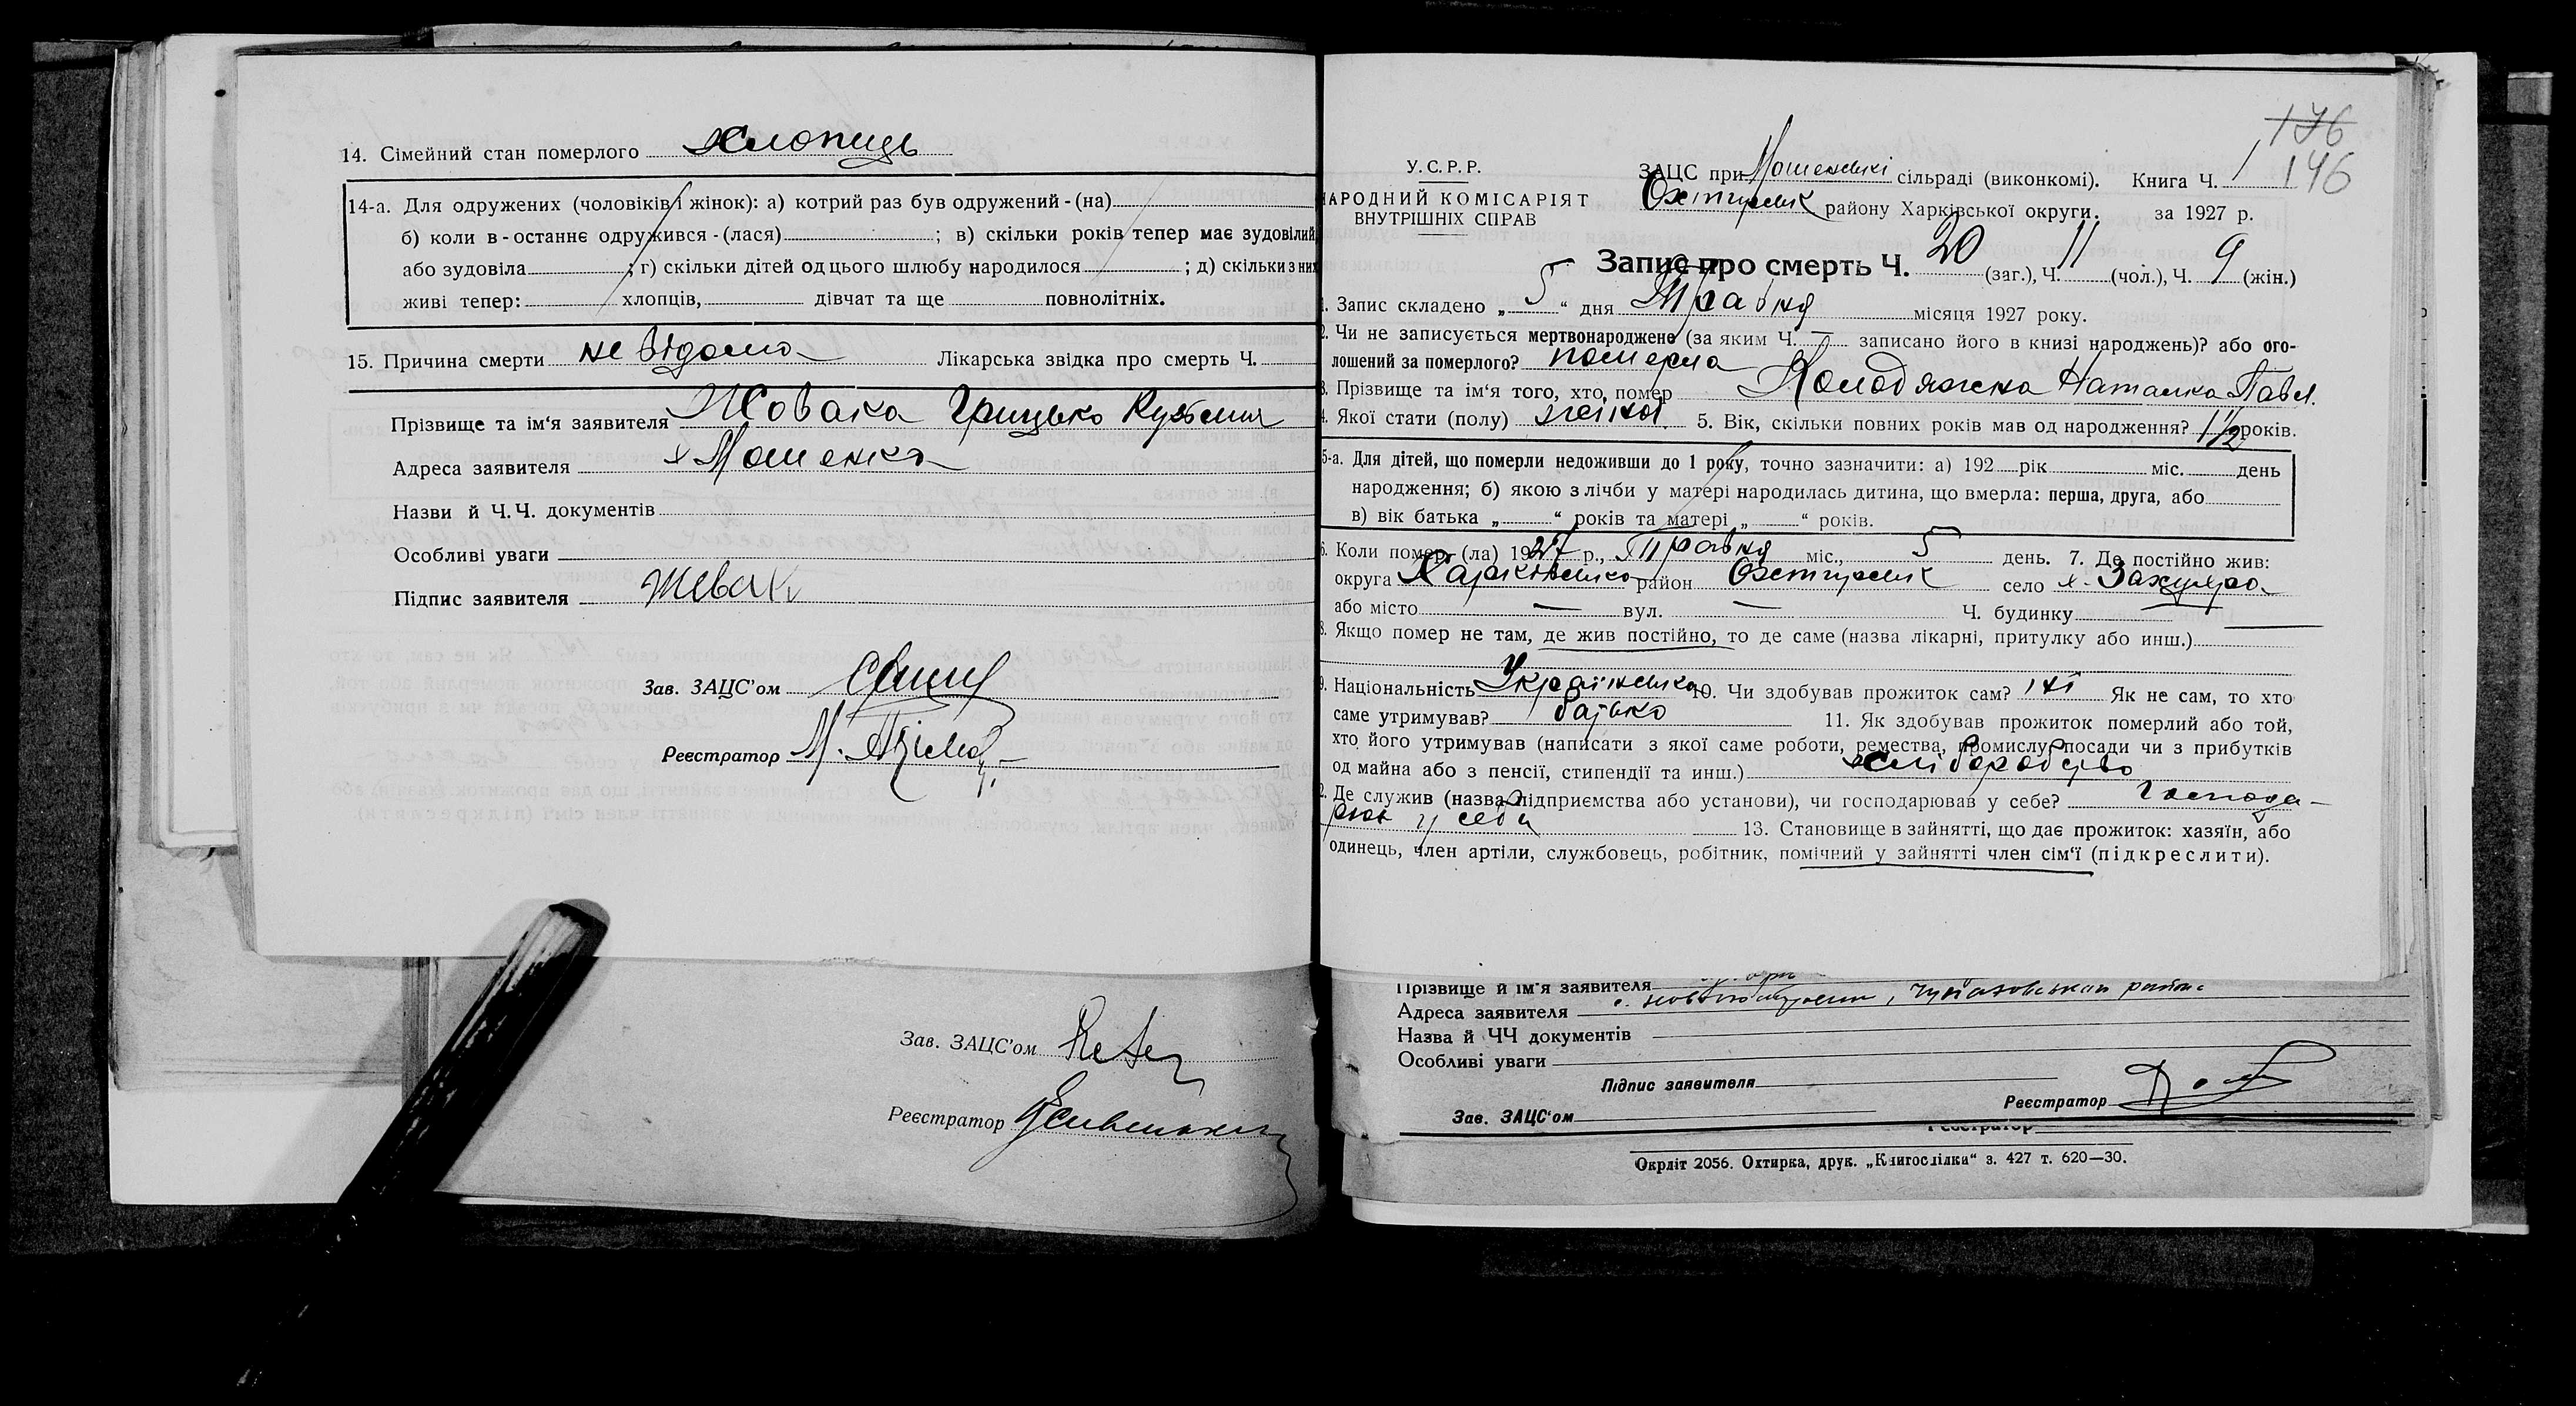 14. Сімейний стан померлого хлопиць
14-а. Для одружених (чоловіків і жінок): а) котрий раз був одружений-(на)
б) коли в-останнє одружився-(лася) ; в) скільки років тепер має зудовілий
або зудовіла ; г) скільки дітей од цього шлюбу народилося ; д) скільки з них
живі тепер: хлопців, дівчат та ще повнолітніх.
15. Причина смерти не відомо Лікарська звідка про смерть Ч.
Прізвище та ім'я заявителя Жовака Грицько Кузьмич
Адреса заявителя х Мошенка
Назви й Ч.Ч. документів
Особливі уваги
Підпис заявителя Жевак
Зав. ЗАЦС'ом
Реєстратор М.
Зав. ЗАЦС'ом
Реєстратор
176
146
У.С.Р.Р.
НАРОДНИЙ КОМІСАРІЯТ
ВНУТРІШНІХ СПРАВ
ЗАЦС при Мошенській сільраді (виконкомі). Книга Ч. 1
Охтирськ району Харківської округи. за 1927 р.
Запис про смерть Ч. 20 (заг.), Ч. 11 (чол.), Ч. 9 (жін.)
1. Запис складено „5“ дня Травня місяця 1927 року.
2. Чи не записується мертвонароджене (за яким Ч. — записано його в книзі народжень)? або ого-
лошений за померлого? померла
3. Прізвище та ім'я того, хто помер Колодяжна Наталка Павл.
4. Якої стати (полу) жінка 5. Вік, скільки повних років мав од народження? 1 1/2 років.
5-а. Для дітей, що померли недоживши до 1 року, точно зазначити: а) 192 рік міс. день
народження; б) якою з лічби у матері народилась дитина, що вмерла: перша, друга, або
в) вік батька „ “ років та матері „ “ років.
6. Коли помер-(ла) 1927 р., Травня міс., 5 день. 7. Де постійно жив:
округа Харківська район Охтирськ село х.
або місто — вул. — Ч. будинку —
8. Якщо помер не там, де жив постійно, то де саме (назва лікарні, притулку або инш.)
9. Національність Українська 10. Чи здобував прожиток сам? ні Як не сам, то хто
саме утримував? батько 11. Як здобував прожиток померлий або той,
хто його утримував (написати з якої саме роботи, ремества, промислу, посади чи з прибутків
од майна або з пенсії, стипендії та инш.) хліборобство
12. Де служив (назва підприємства або установи), чи господарював у себе? господа-
рює у себе 13. Становище в зайнятті, що дає прожиток: хазяїн, або
одинець, член артіли, службовець, робітник, помічний у зайнятті член сім'ї (підкреслити).
Прізвище й ім'я заявителя
Адреса заявителя район
Назва й ЧЧ документів
Особливі уваги
Підпис заявителя
Реєстратор
Зав. ЗАЦС'ом
Реєстратор
Окрліт 2056. Охтирка, друк. „Книгоспілка“ з. 427 т. 620—30.